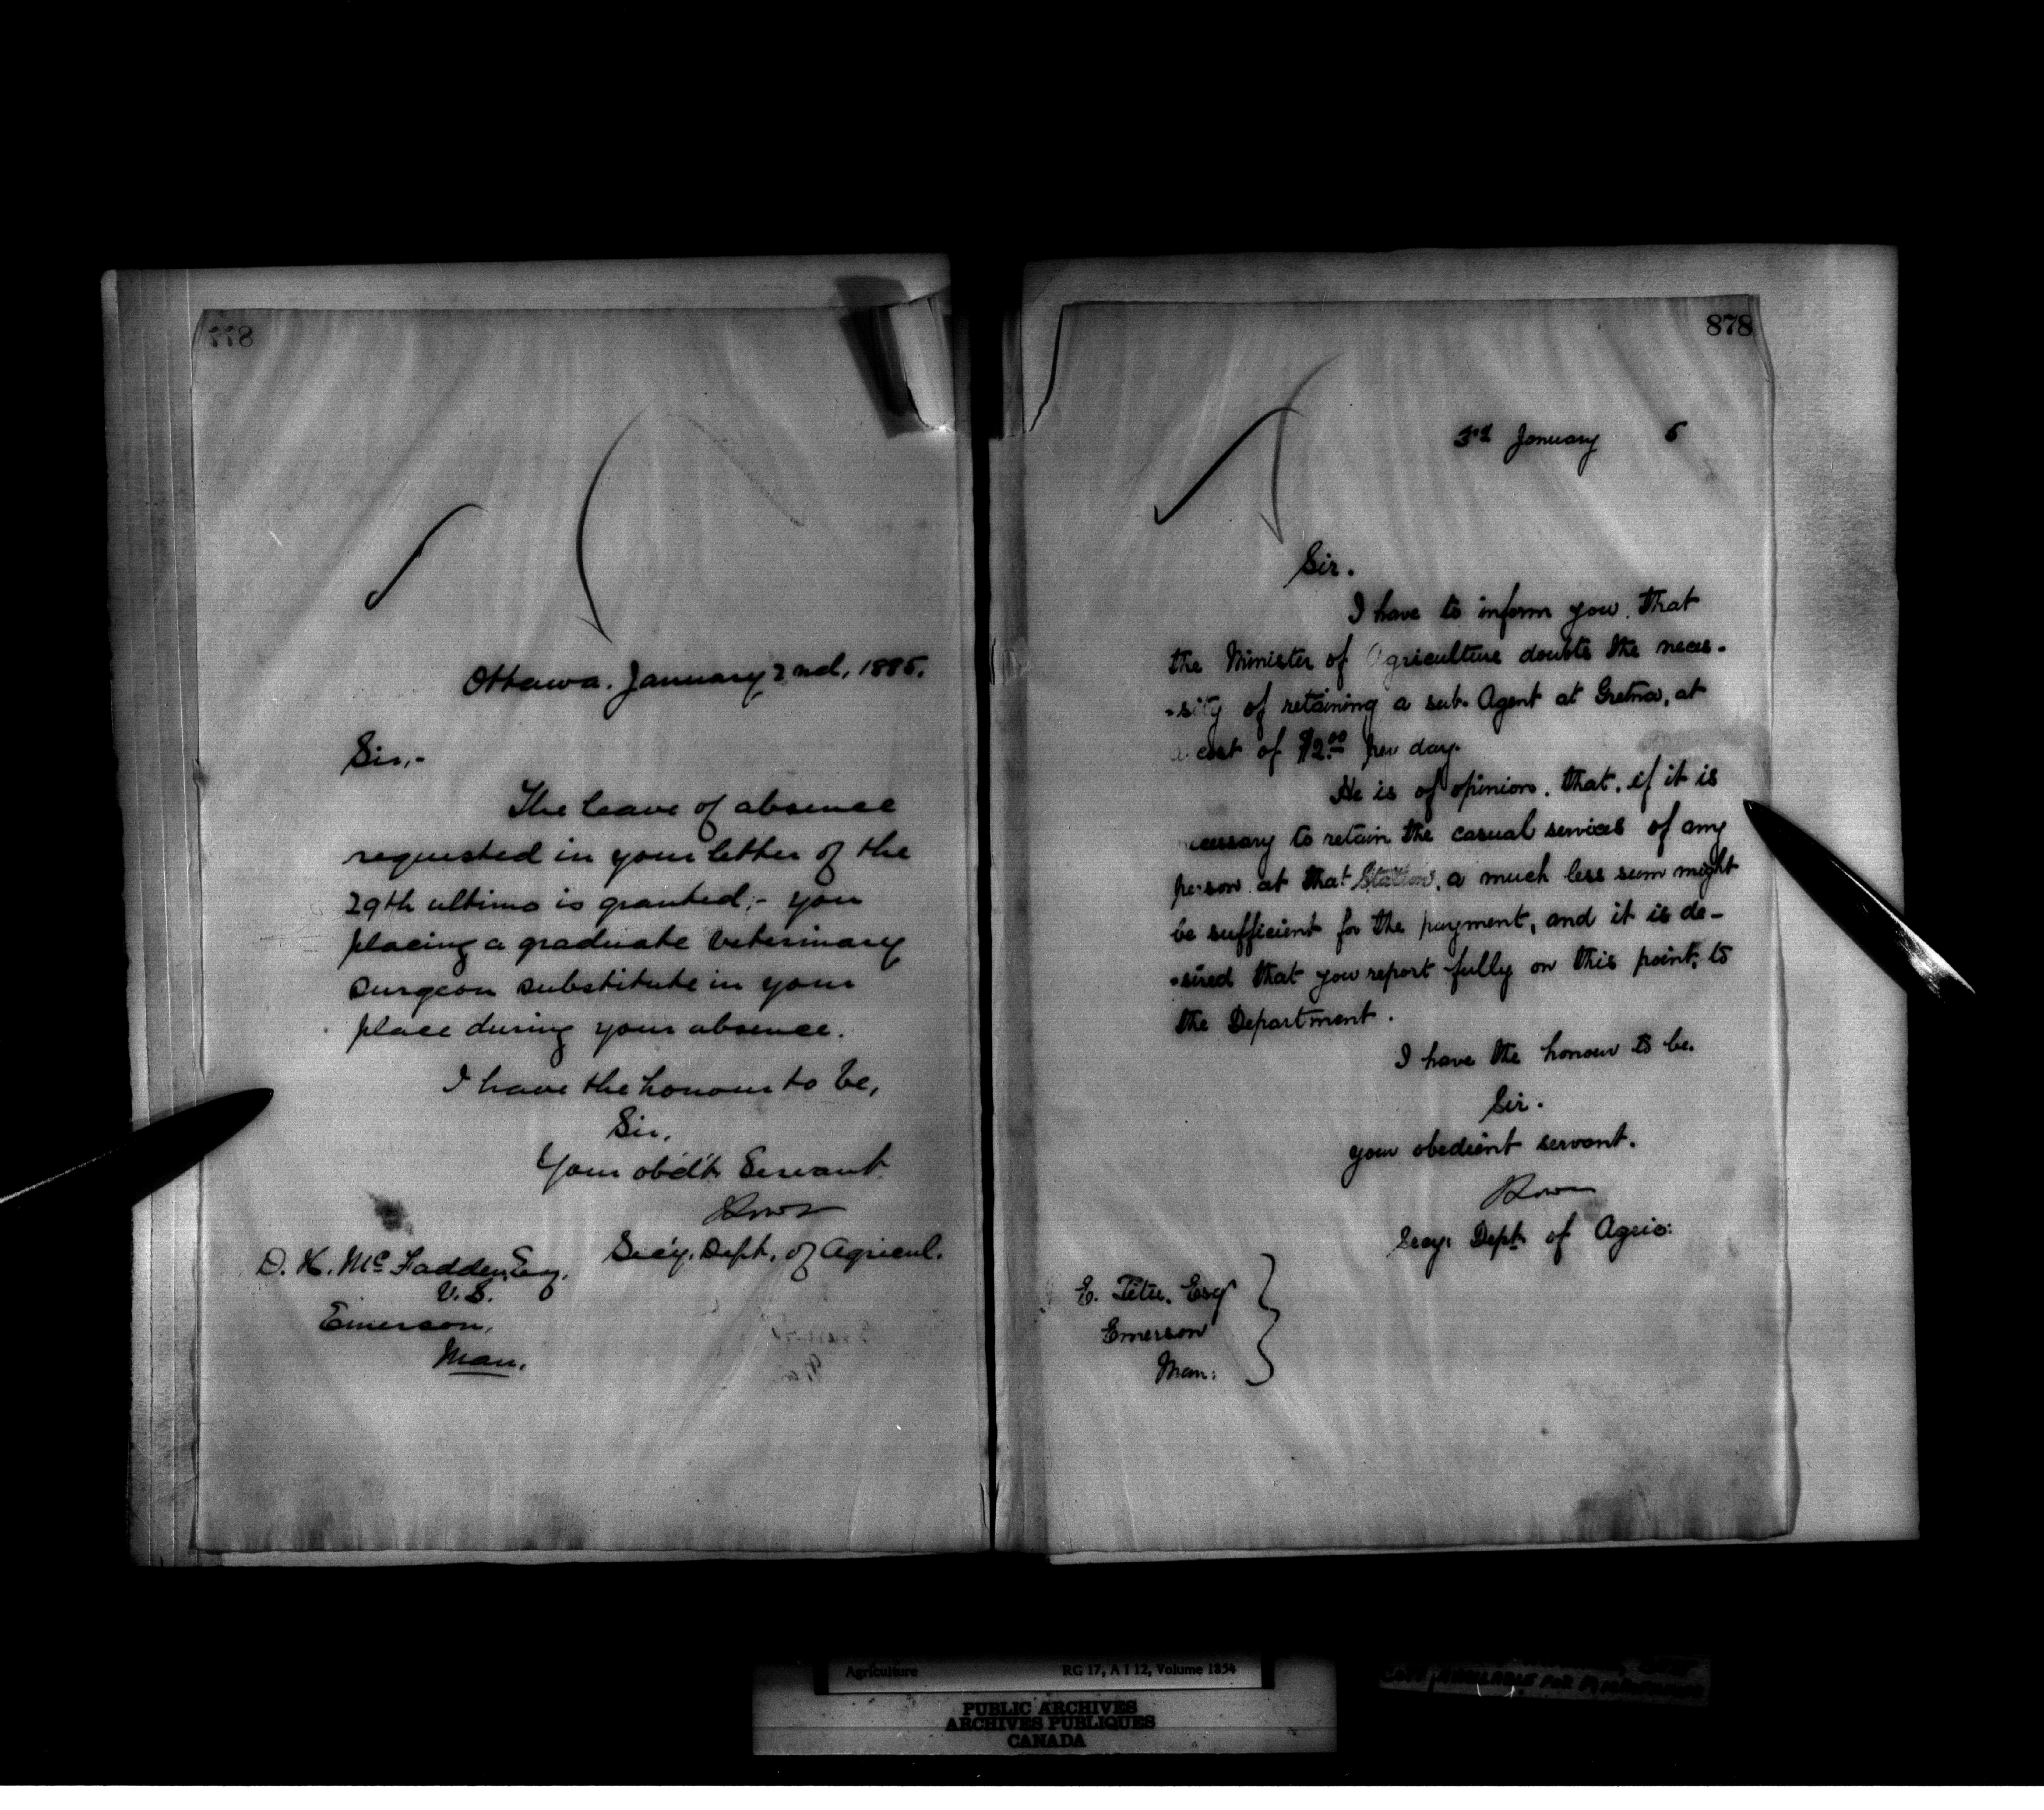 877
Ottawa. January 2nd, 1885.
Sir,-
The leave of absence
requested in your letter of the
29th ultimo is granted;- you
placing a graduate veterinary
surgeon substitute in your
place during your absence.
I have the honour to be,
Sir,
Your obd't Servant
Sec'y. Dept. of Agricul.
D. H. McFadden, Esq.
V.S.
Emerson,
Man.
878
3rd January 5
Sir.
I have to inform you. that
the Minister of Agriculture doubts the neces-
-sity of retaining a sub-Agent at Gretna, at
a cost of $2.00 per day.
He is of opinion. that. if it is
necessary to retain the casual services of any
person at that Station, a much less sum might
be sufficient for the payment, and it is de-
-sired that you report fully on this point, to
the Department.
I have the honour to be.
Sir.
your obedient servant.
Secy: Dept. of Agric:
E. Têtu. Esq
Emerson
Man:
Agriculture RG 17, A I 12, Volume 1854
PUBLIC ARCHIVES
ARCHIVES PUBLIQUES
CANADA
AVAILABLE FOR